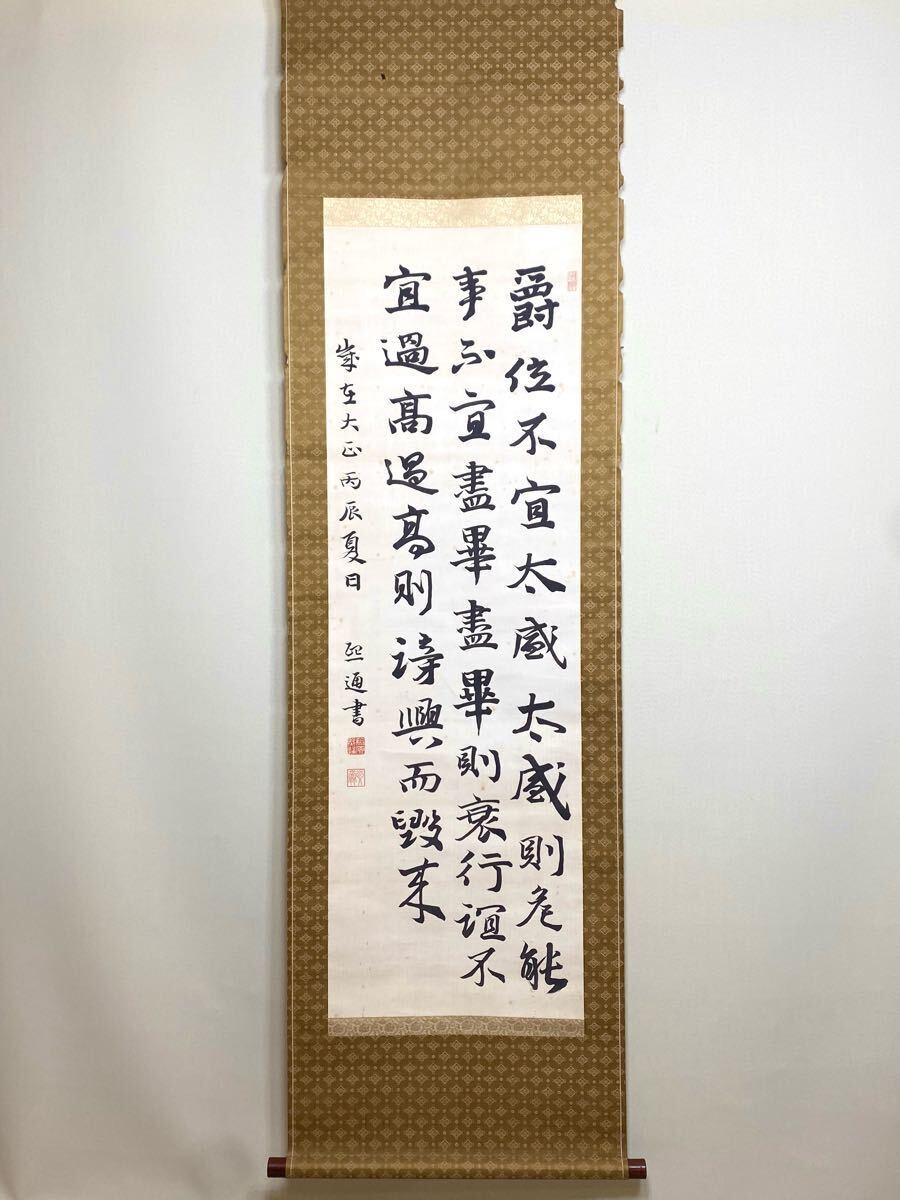 爵位不宜太盛太盛則危能
事不宜盡畢盡畢則衰行誼不
宜過高過高則謗興而毀来
歳在大正丙辰夏日
熙通書